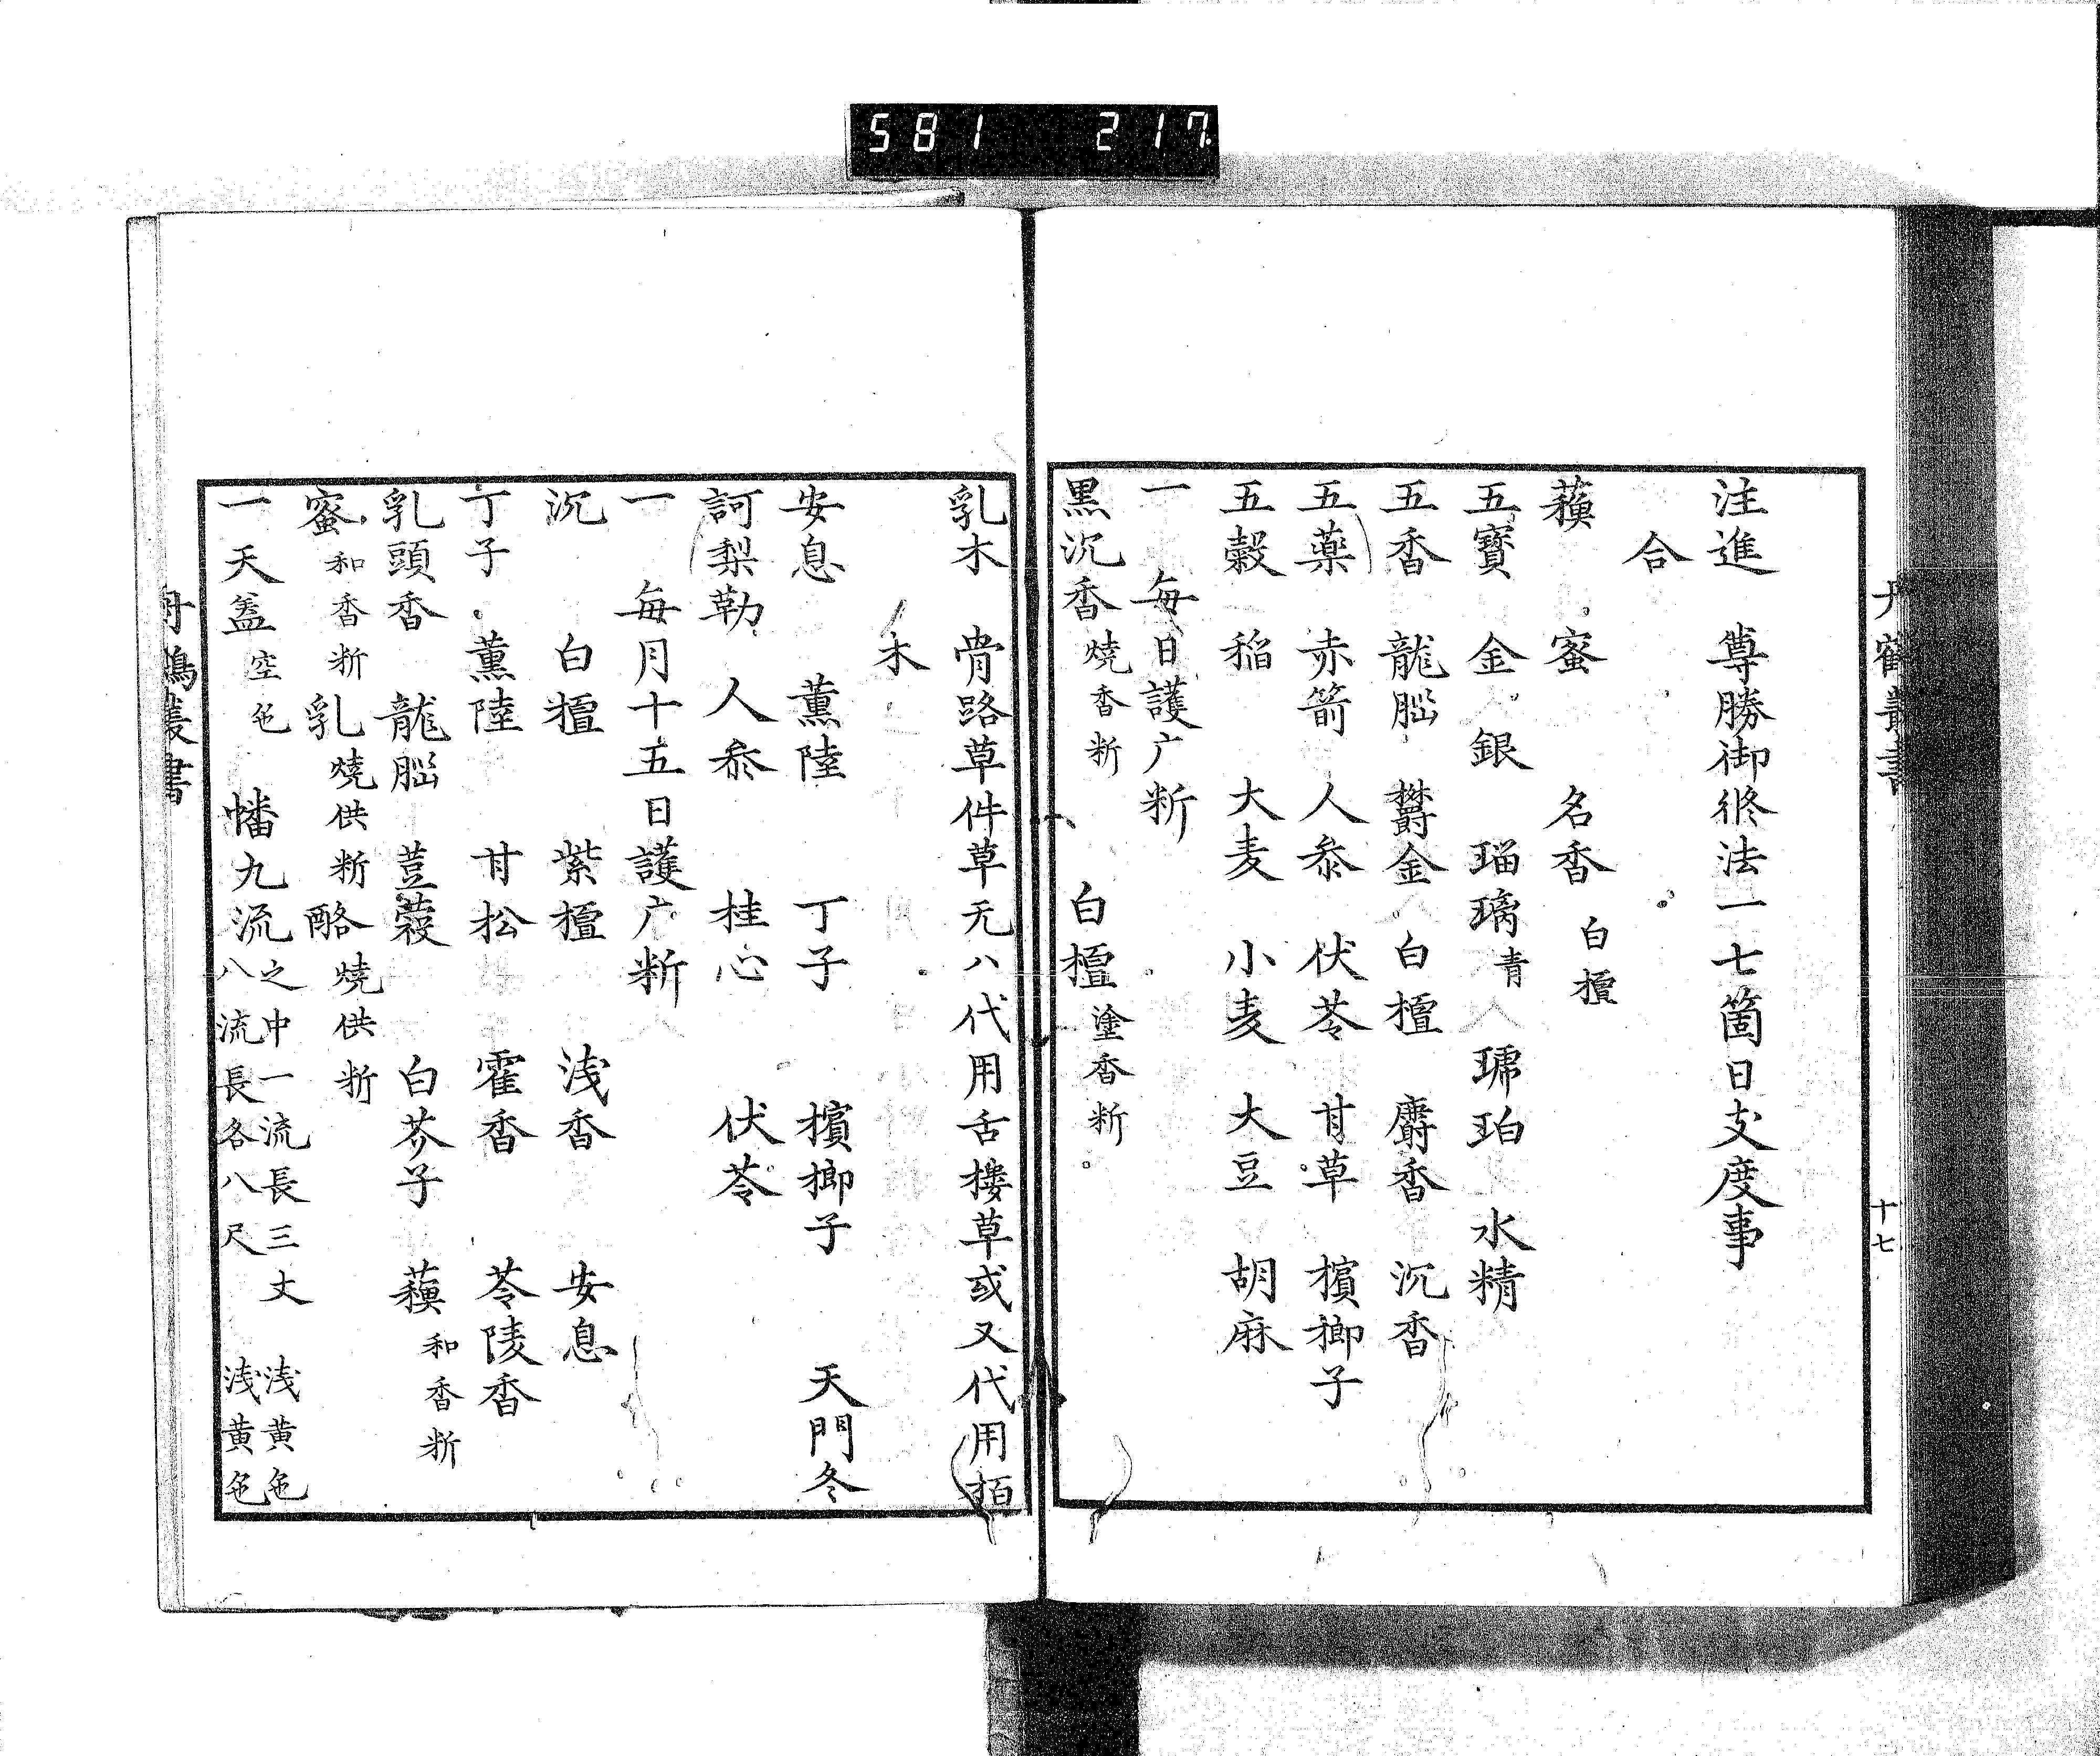 581 217
十七
注進 尊勝御修法一七箇日支度事
合
蘓 蜜 名香 白檀
五寳 金 銀 瑠璃 青 琥珀 水精
五香 龍脳 欝金 白檀 麝香 沉香
五藥 赤箭 人参 伏苓 甘草 檳榔子
五穀 稲 大麦 小麦 大豆 胡麻
一 毎日護广䉼
黒沉香 燒香䉼 白檀 塗香䉼
乳木 骨路草件草无八代用舌樓草或又代用栢
木
安息 薫陸 丁子 檳榔子 天門冬
訶梨勒 人参 桂心 伏苓
一 毎月十五日護广䉼
沉 白檀 紫檀 浅香 安息
丁子 薫陸 甘松 霍香 苓陵香
乳頭香 龍脳 荳蔲 白芥子 蘓 和香䉼
蜜 和香䉼 乳 燒供䉼 酪 燒供䉼
一天盖 空色 幡九流 之中一流長三丈 浅黄色
八流長各八尺 浅黄色